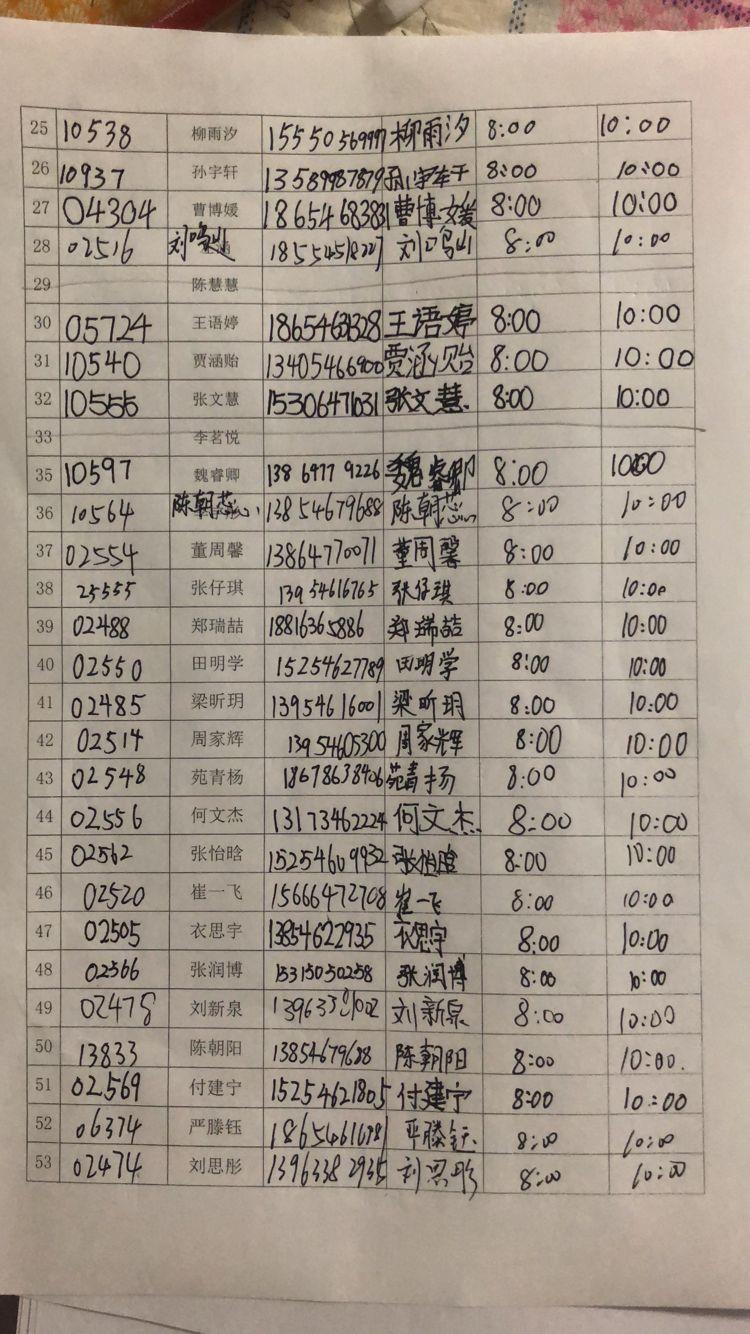 25 10538 柳雨汐 15550569997 柳雨汐 8:00 10:00
26 10937 孙宇轩 13589987879 孙宇轩 8:00 10:00
27 04304 曹博媛 18654683831 曹博媛 8:00 10:00
28 02516 刘鸣山 刘鸣山 8:00 10:00
29 陈慧慧
30 05724 王语婷 18654631328 王语婷 8:00 10:00
31 10540 贾涵贻 13405466900 贾涵贻 8:00 10:00
32 10555 张文慧 15306471031 张文慧 8:00 10:00
33 李茗悦
35 10597 魏睿卿 138 6977 9226 魏睿卿 8:00 10:00
36 10564 陈朝蕊 13854679688 陈朝蕊 8:00 10:00
37 02554 董周馨 13864770071 董周馨 8:00 10:00
38 25555 张仔琪 13954616765 张仔琪 8:00 10:00
39 02488 郑瑞喆 18816365886 郑瑞喆 8:00 10:00
40 02550 田明学 15254627789 田明学 8:00 10:00
41 02485 梁昕玥 13954616001 梁昕玥 8:00 10:00
42 02514 周家辉 13954605300 周家辉 8:00 10:00
43 02548 苑青杨 18678638406 苑青扬 8:00 10:00
44 02556 何文杰 13173462224 何文杰 8:00 10:00
45 02562 张怡晗 15254609932 张怡晗 8:00 10:00
46 02520 崔一飞 15666472708 崔一飞 8:00 10:00
47 02505 衣思宇 13854622935 衣思宇 8:00 10:00
48 02566 张润博 15315050258 张润博 8:00 10:00
49 02478 刘新泉 刘新泉 8:00 10:00
50 13833 陈朝阳 13854679688 陈朝阳 8:00 10:00.
51 02569 付建宁 15254621805 付建宁 8:00 10:00
52 06374 严滕钰 严滕钰 8:00 10:00
53 02474 刘思彤 13963382935 刘思彤 8:00 10:00